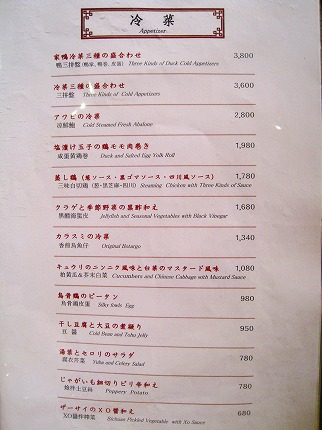 冷菜
Appetizer
家鴨冷菜三種の盛合わせ 3,800
鴨三拼盤 Three Kinds of Duck Cold Appetizers
冷菜三種の盛合わせ 3,600
三拼盤 Three Kinds of Cold Appetizers
アワビの冷菜 2,800
涼鮮鮑 Cold Steamed Fresh Abalone
塩漬け玉子の鶏モモ肉巻き 1,980
咸蛋黄鶏巻 Duck and Salted Egg Yolk Roll
蒸し鶏(葱ソース・黒ゴマソース・四川風ソース) 1,780
三味白切鶏 (葱・黒芝麻・四川) Steaming Chicken with Three Kinds of Sauce
クラゲと季節野菜の黒酢和え 1,680
黒醋海蜇皮 Jellyfish and Seasonal Vegetables with Black Vinegar
カラスミの冷菜 1,340
香煎烏魚仔 Original Botargo
キュウリのニンニク風味と白菜のマスタード風味 1,080
拍黄瓜&芥末白菜 Cucumbers and Chinese Cabbage with Mustard Sauce
烏骨鶏のピータン 980
烏骨鶏皮蛋 Silky fowls Egg
干し豆腐と大豆の煮凝り 950
豆醤 Cold Bean and Tohu Jelly
湯葉とセロリのサラダ 780
Yuba and Celery Salad
じゃがいも細切りピリ辛和え 780
熗拌土豆絲 Peppery Potato
ザーサイのXO醤和え 680
XO醤拌搾菜 Sichuan Pickled Vegetable with Xo Sauce